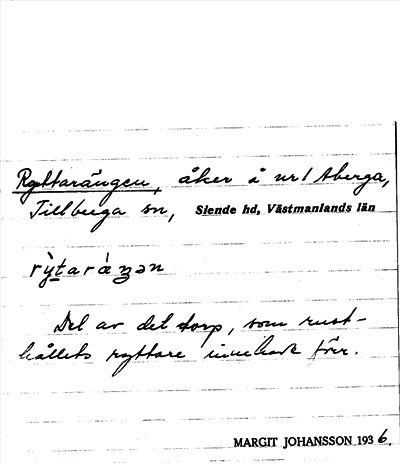 Ryttarängen, åker å nr 1 Aberga,
Tillbuga sn, Siende hd, Västmanlands län
rỳtaráŋən
Del av det torp, som rust-
hållets ryttare innehade förr.
MARGIT JOHANSSON 1936.